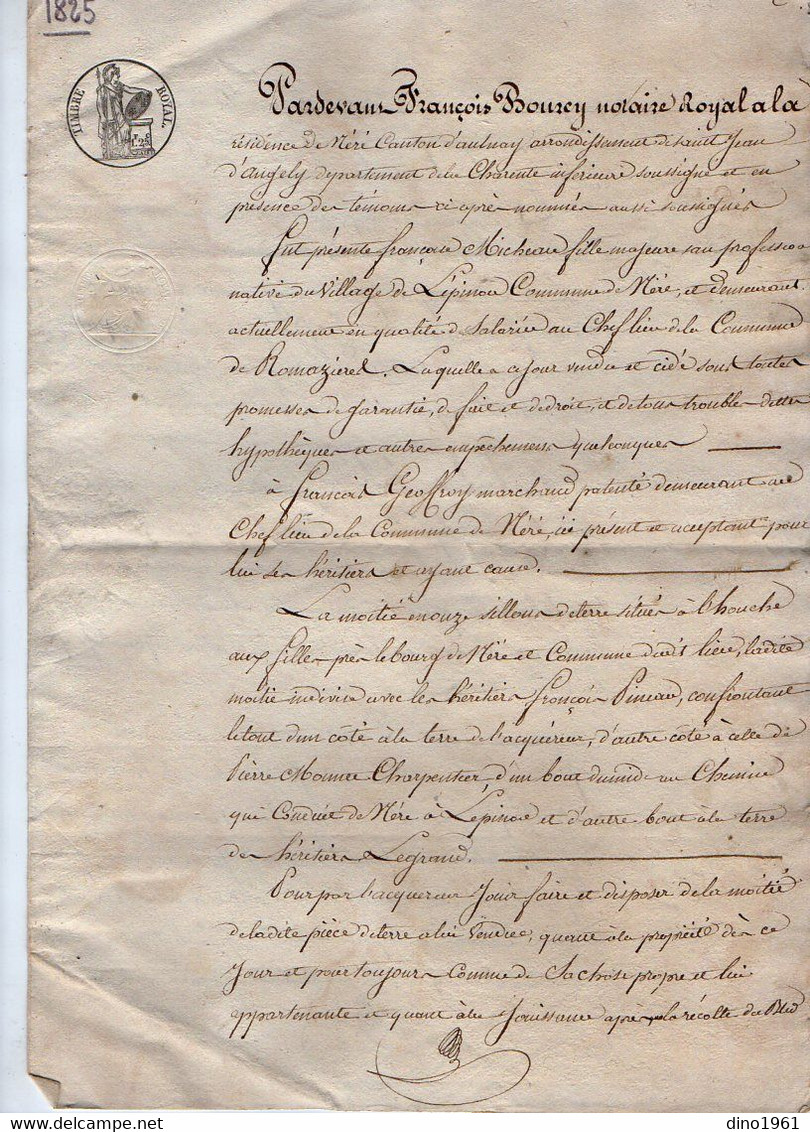 1825
TIMBRE ROYAL.
Pardevant François Bourcy notaire Royal a la
résidence de Néré Canton d'aulnay arrondissement de saint Jean
d'angely departement de la Charente inférieure soussigné et en
présence des témoins ci après nommés aussi soussignés
fut présente françoise Micheau fille majeure san profession
native du Village de L'épinou Commune de Néré, et demeurant
actuellement en qualité de salariée au Chef lieu de la Commune
de Romazieres. Laquelle a ce jour vendu et cédé sous toutes
promesses de garantie, de fait et de droit, et de tous troubles dettes
hypothèques et autres empêchemens quelconques
à françois Geoffroy marchand patenté demeurant au
Chef lieu de la Commune de Néré, ici présent et acceptant pour
lui ses héritiers et ayant cause.
La moitié en onze sillons de terre situés à l'houche
aux filles près le bourg de Néré et Commune dudt lieu, ladite
moitié indivise avec les héritiers françois Pineau, confrontant
le tout d'un côté à la terre de l'acquéreur, d'autre côté à celle de
Pierre Charpentier d'un bout du midi au Chemin
qui Conduit de Néré à L'épinou et d'autre bout à la terre
des héritiers Legrand.
Pour par l'acquereur Jouir faire et disposer de la moitié
de la dite pièce de terre a lui Vendue, quant à la propriété dès ce
Jour et pour toujours Comme de Sa chose propre et lui
appartenante et quant à la Jouissance après la récolte du Bled
dino1961